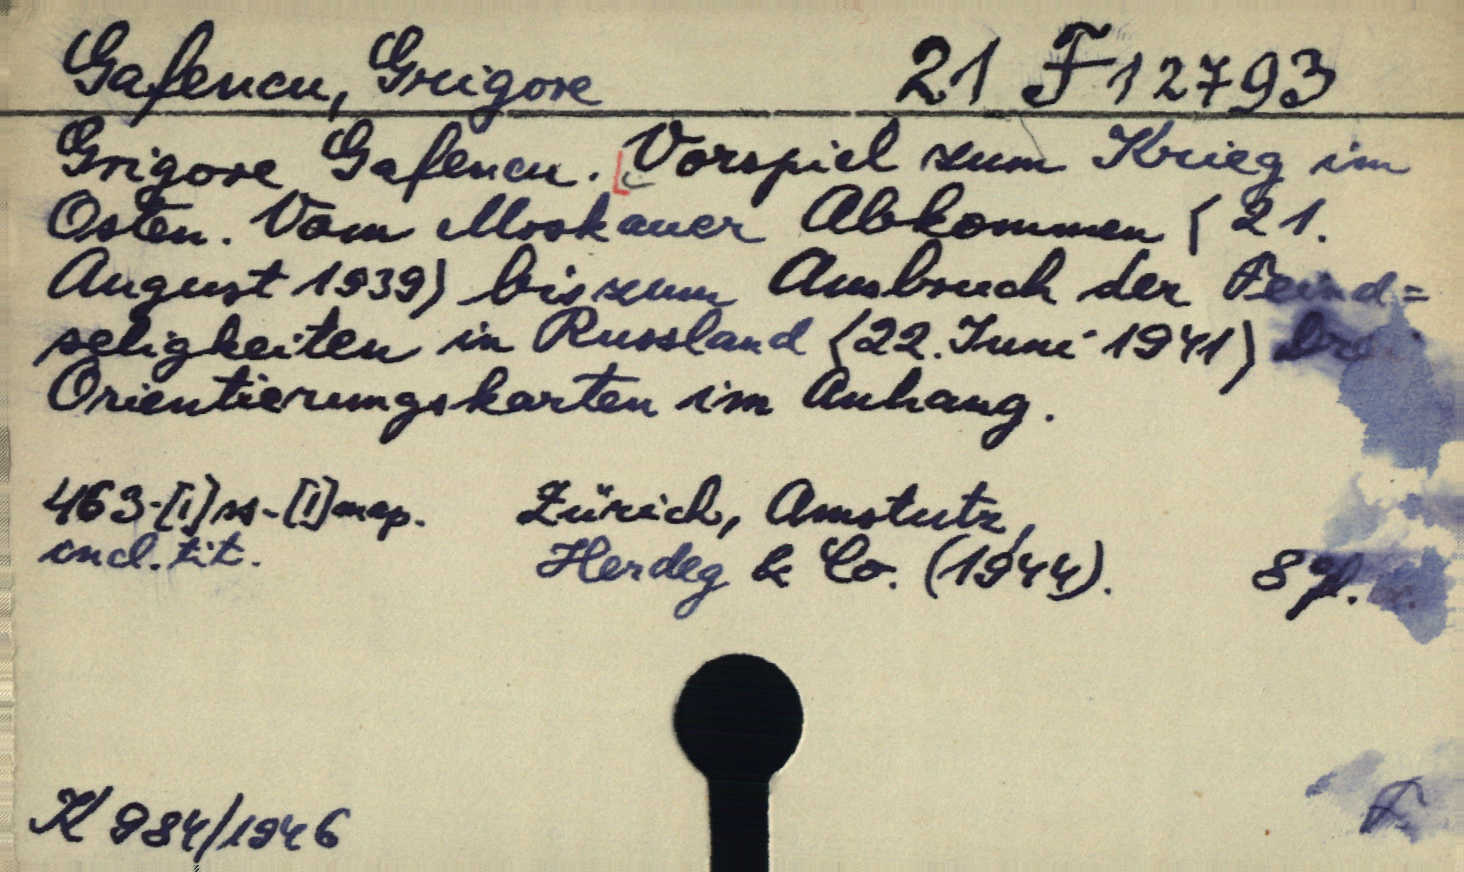 Gafencu, Grigore 21 F 12793
Grigore Gafencu. [Vorspiel zum Krieg im
Osten. Vom Moskauer Abkommen (21.
August 1939) bis zum Ausbruch der Feind=
seligkeiten in Russland (22. Juni 1941)
Orientierungskarten im Anhang.
463-[1] ss-[1] map. Zürich, Amstutz,
incl. tit. Herdeg & Co. (1944). 8°
K 984/1946 F.